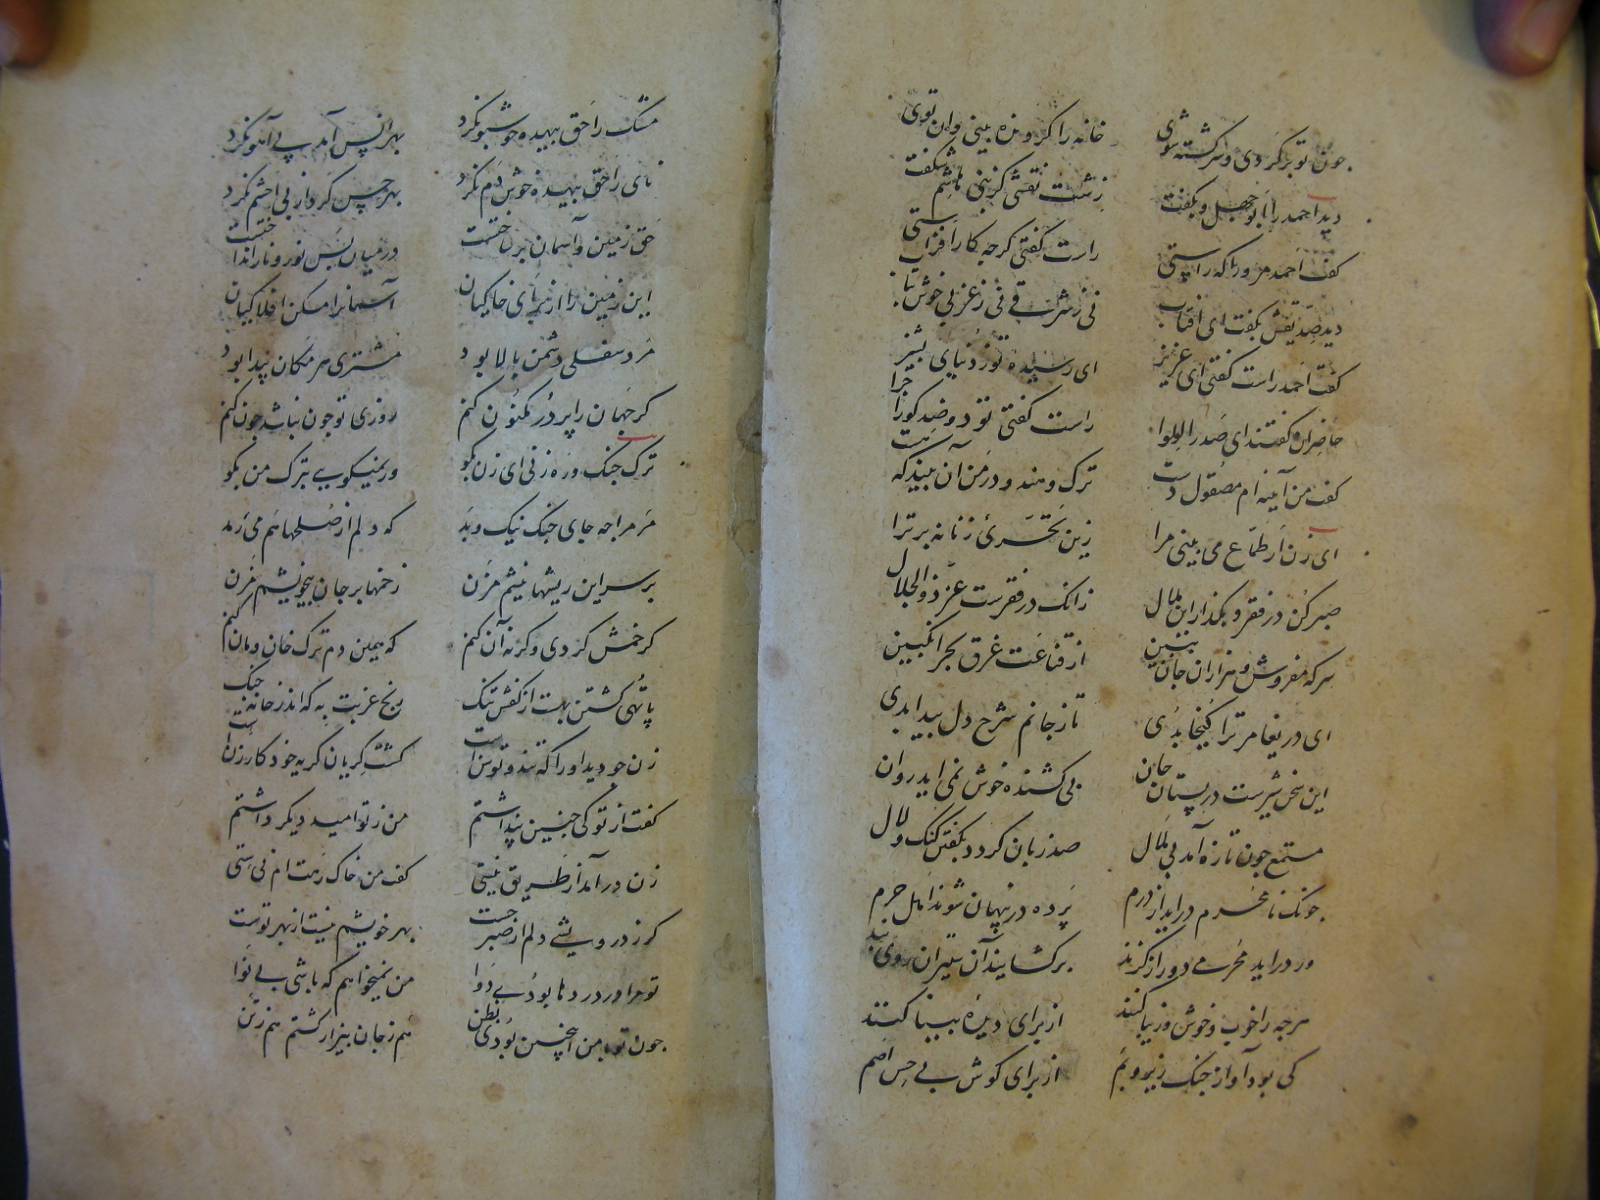 چون تو برگردی و سرگشته شوی خانه را گردنده بینی وان توی
دید احمد را ابوجهل و بگفت زشت نقشی کز بنی هاشم شگفت
گفت احمد مر ورا که راستی راست گفتی گرچه کار افزاستی
دید صدیقش بگفت ای آفتاب نی ز شرقی نی ز غربی خوش بتاب
گفت احمد راست گفتی ای عزیز ای رسیده تو ز دنیای نچیز
حاضران گفتند ای صدر الوری راست گفتی تو دو ضد گو را چرا
گفت من آینه ام مصقول دست ترک و هندو در من آن بیند که هست
ای زن ار طماع می بینی مرا زین تحری زنانه برتر آ
صبر کن در فقر و بگذار این ملال زانک در فقرست عز ذوالجلال
سرکه مفروش و هزاران جان ببین از قناعت غرق بحر انگبین
ای دریغا مر ترا گنجا بدی تا ز جانم شرح دل پیدا بدی
این سخن شیرست در پستان جان بی کشنده خوش نمی اید روان
مستمع چون تازه آمد بی ملال صد زبان گردد بگفتن گنگ و لال
چونک نامحرم دراید از درم پرده در پنهان شوند اهل حرم
ور دراید محرمی دور از گزند برگشایند آن ستیران روی بند
هرچه را خوب و خوش و زیبا کنند از برای دیده بینا کنند
کی بود آواز چنگ زیر و بم از برای گوش بی حس اصم
مشک را حق بیهده خوشبو نکرد بهر انس آمد پی آهو نکرد
نای را حق بیهده خوش دم نکرد بهر حس کرد از پی اخشم نکرد
حق زمین و آسمان بر ساختست در میان بس نور و نار انداختست
این زمین را از برای خاکیان آسمانرا مسکن افلاکیان
مرد سفلی دشمن بالا بود مشتری هر مکان پیدا بود
گر جهان را پر در مکنون کنم روزی تو چون نباشد چون کنم
ترک جنگ و ره زنی ای زن بگو ور نمیگویی بترک من بگو
مر مرا چه جای جنگ نیک و بد که دلم از صلحها هم می رمد
بر سر این ریشها نیشم مزن زخمها بر جان بیخویشم مزن
گر خمش کردی وگرنه آن کنم که همین دم ترک خان و مان کنم
پا تهی گشتن بهست از کفش تنگ رنج غربت به که اندر خانه جنگ
زن چو دید او را که تند و توسنست گشت گریان گریه خود کار زنست
گفت از تو کی چنین پنداشتم من ز تو امید دیگر داشتم
زن درآمد از طریق نیستی گفت من خاک رهت ام نی ستی
گر ز درویشی دلم از صبر جست بهر خویشم نیست از بهر توست
تو مرا در دردها بودی دوا من نمیخواهم که باشی بی نوا
چون تو با من اینچنین بودی بظن هم ز جان بیزار گشتم هم ز تن